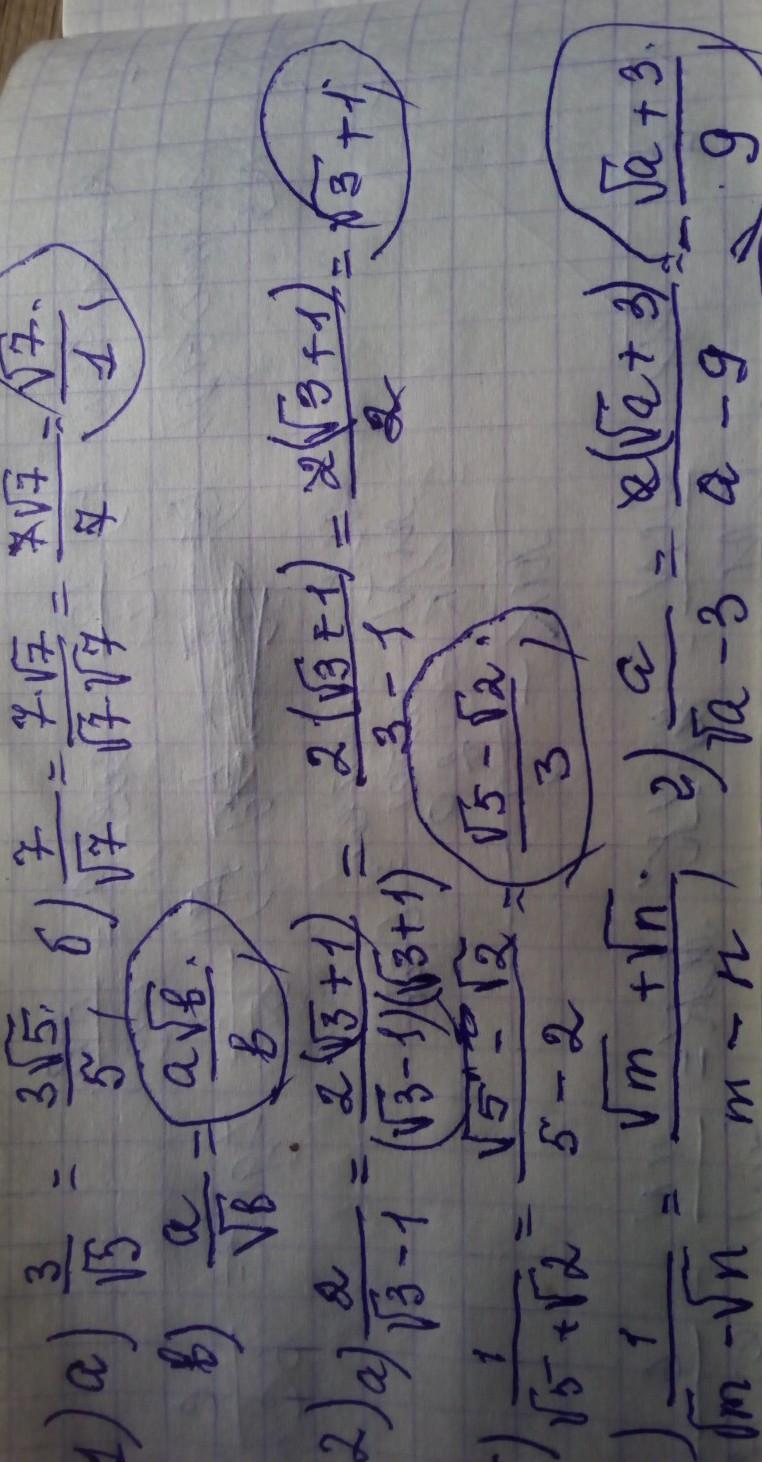 1) а) 3/√5 = 3√5/5; б) 7/√7 = 7·√7/√7·√7 = 7√7/7 = √7/1;
в) a/√b = a√b/b;
2) а) 2/√3-1 = 2(√3+1)/(√3-1)(√3+1) = 2(√3+1)/3-1 = 2(√3+1)/2 = √3+1;
) 1/√5+√2 = √5-√2/5-2 = √5-√2/3;
) 1/√m-√n = √m+√n/m-n; г) a/√a-3 = 2(√a+3)/a-9 = √a+3/9